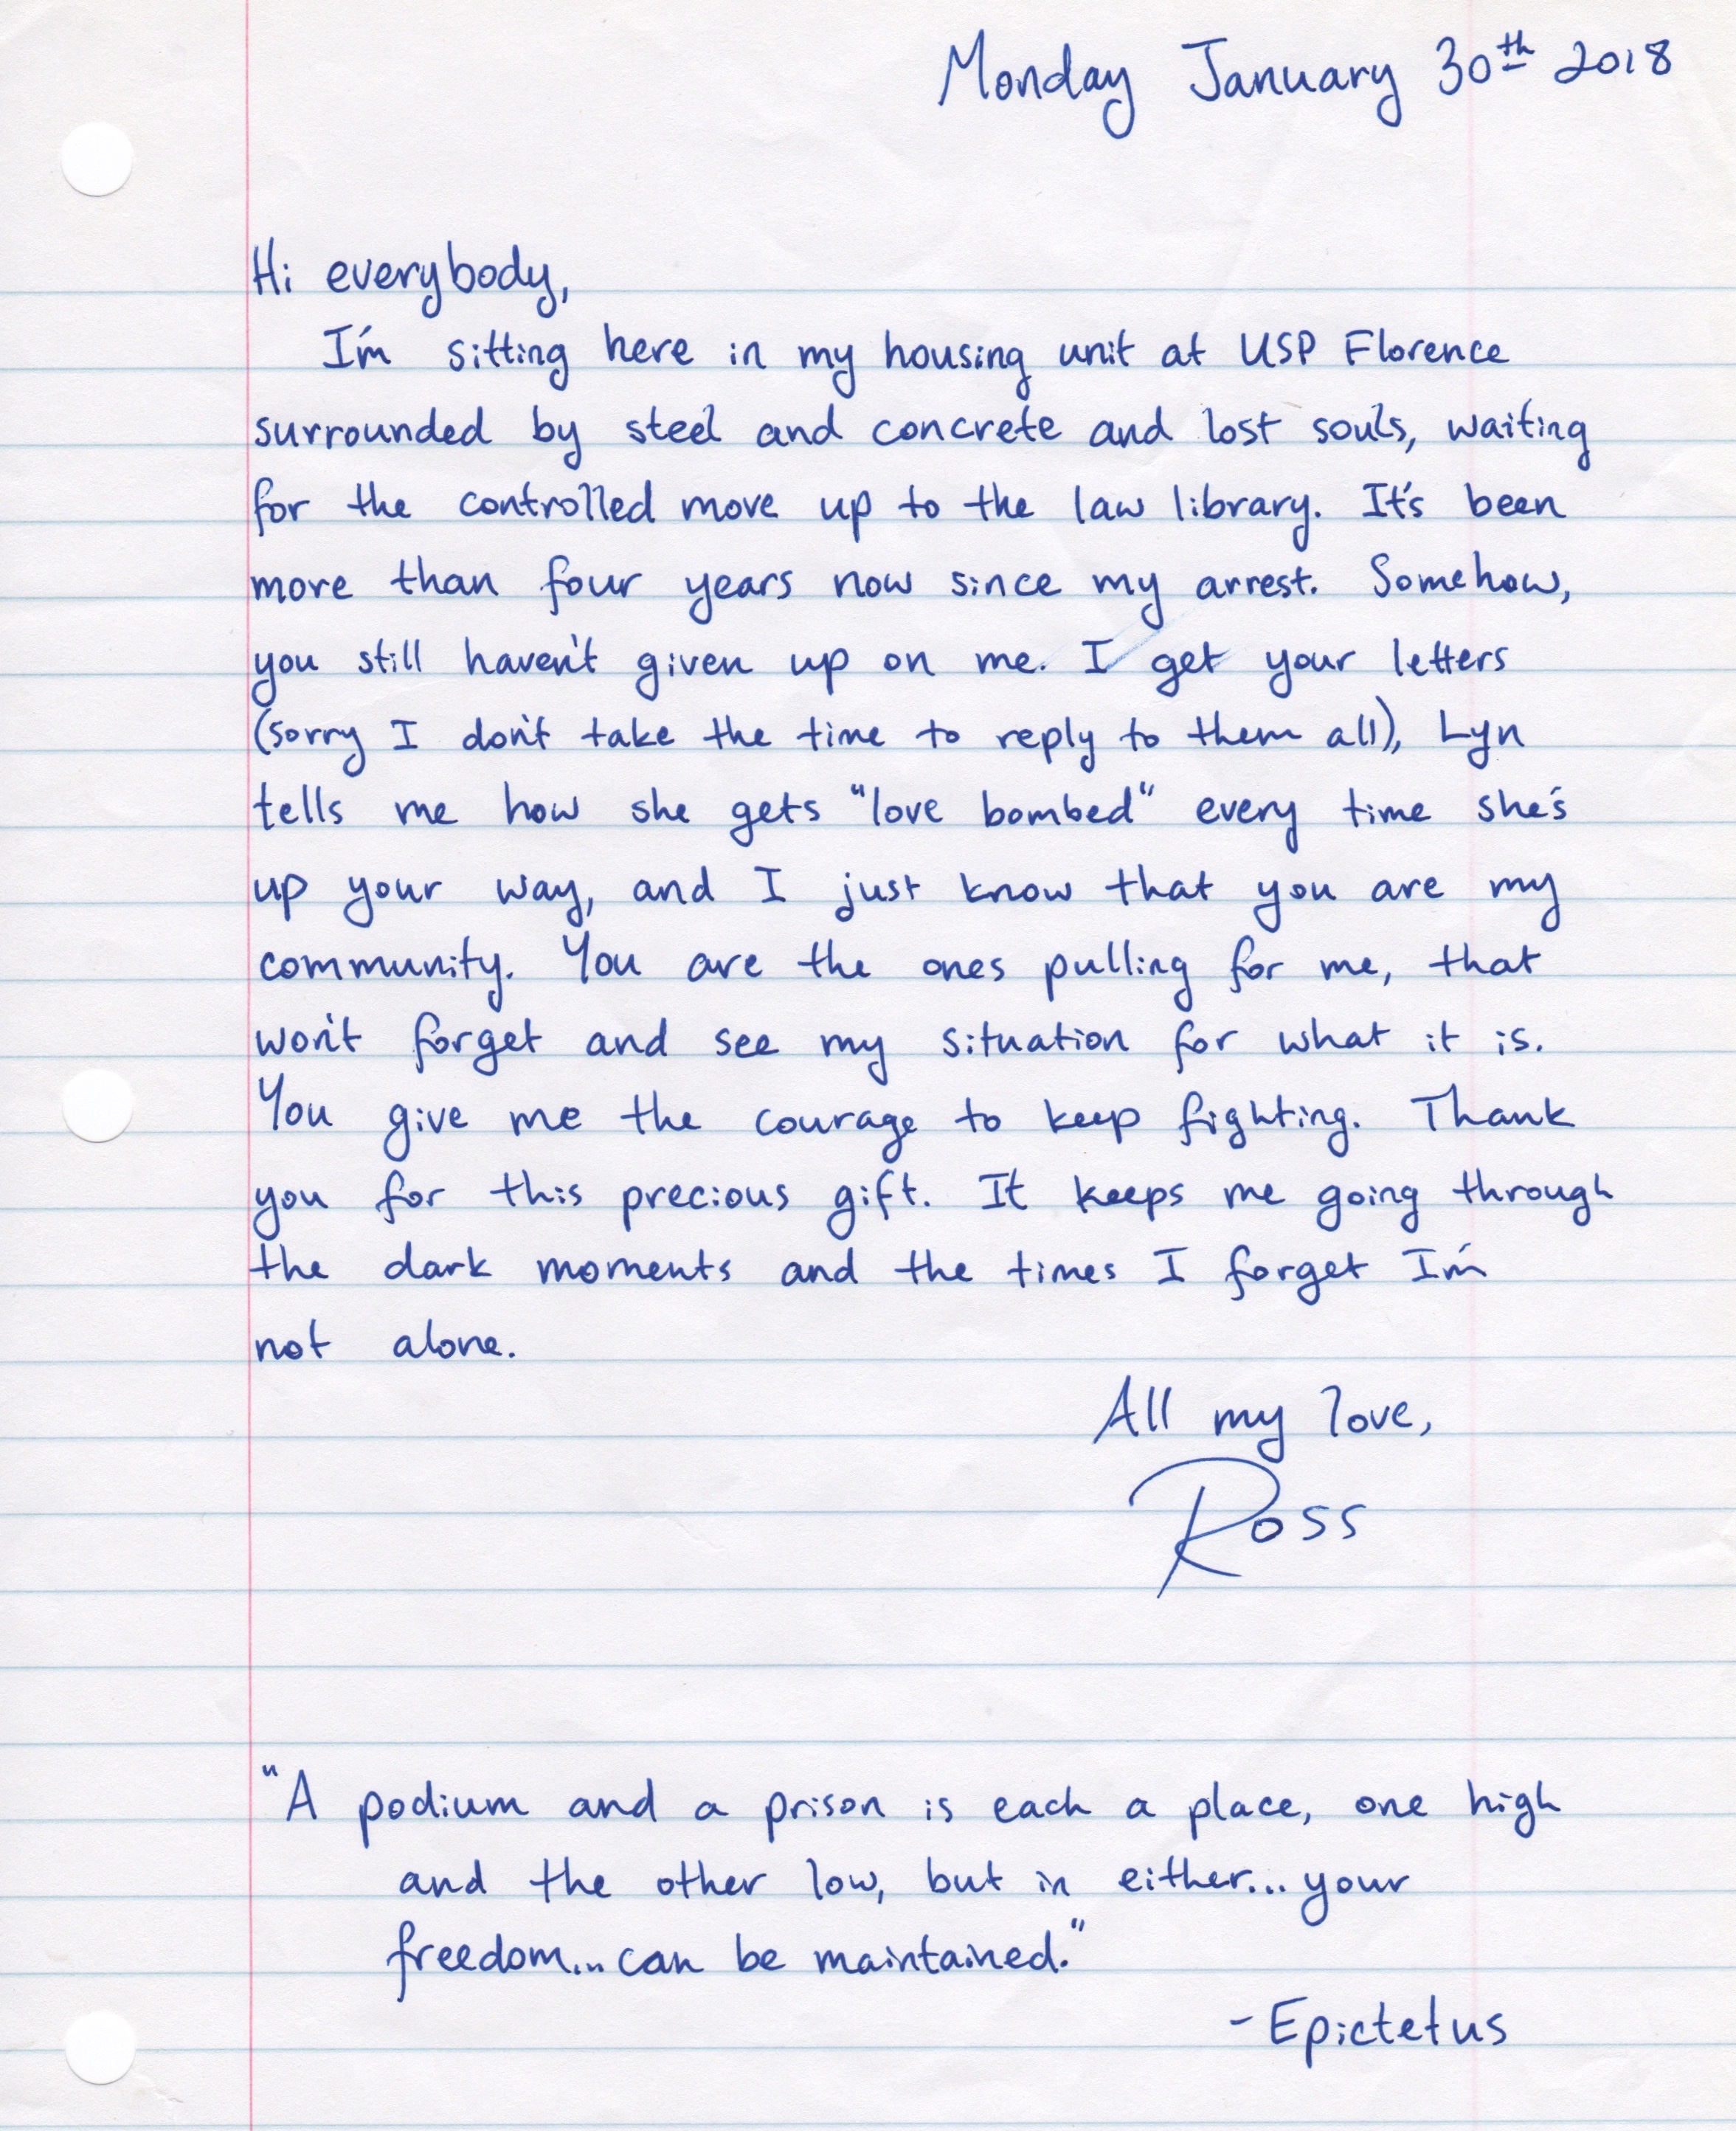 Monday January 30th 2018
Hi everybody,
I'm sitting here in my housing unit at USP Florence
surrounded by steel and concrete and lost souls, waiting
for the controlled move up to the law library. It's been
more than four years now since my arrest. Somehow,
you still haven't given up on me. I get your letters
(sorry I don't take the time to reply to them all), Lyn
tells me how she gets "love bombed" every time she's
up your way, and I just know that you are my
community. You are the ones pulling for me, that
won't forget and see my situation for what it is.
You give me the courage to keep fighting. Thank
you for this precious gift. It keeps me going through
the dark moments and the times I forget I'm
not alone.
All my love,
Ross
"A podium and a prison is each a place, one high
and the other low, but in either... your
freedom... can be maintained."
- Epictetus